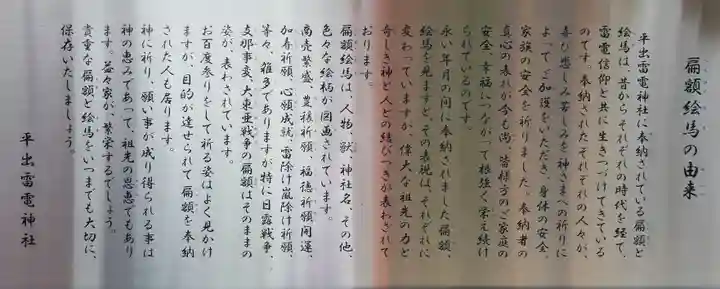 扁額絵馬の由来
平出雷電神社に奉納されている扁額と
絵馬は、昔からそれぞれの時代を経て、
雷電信仰と共に生きつづけてきている
のです。奉納されたそれぞれの人々が、
喜び悲しみ苦しみを神さまへの祈りに
よってご加護をいただき、身体の安全、
家族の安全を祈りました。奉納者の
真心の表れが今も尚、皆様方のご家庭の
安全、幸福につながって根強く栄え続け
られているのです。
永い年月の間に奉納されました扁額、
絵馬を見ますと、その表現は、それぞれに
変わっていますが、偉大な祖先の力と
奇しき神と人との結びつきが表わされて
おります。
扁額絵馬は、人物、獣、神社名、その他、
色々な絵柄が図画されています。
商売繁盛、豊穣祈願、福徳祈願開運、
加寿祈願、心願成就、雷除け嵐除け祈願、
等々、種多くありますが特に日露戦争、
支那事変、大東亜戦争の扁額はそのままの
姿が、表わされています。
お百度参りをして祈る姿はよく見かけ
ますが、目的が達せられて扁額を奉納
された人も居ります。
神に祈り、願い事が成り得られる事は
神の恵みであって、祖先の恩恵でもあり
ます。益々家が、繁栄するでしょう。
貴重な扁額と絵馬をいつまでも大切に、
保存いたしましょう。
平出雷電神社